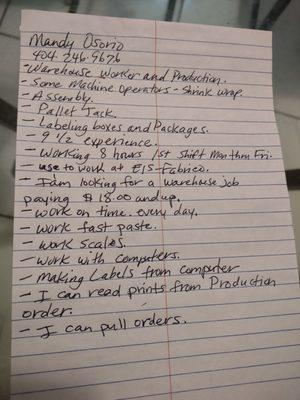 Mandy Osorio
404-246-9676
- Warehouse Worker and Production.
- Some Machine Operators - Shrink wrap.
- Assembly.
- Pallet Task.
- Labeling boxes and Packages.
- 9 1/2 experience.
- Working 8 hours 1st shift Mon thru Fri.
- use to work at E/S-Fabrico.
- I am looking for a warehouse job
paying $18.00 and up.
- work on time. every day.
- work fast paste.
- work scales.
- work with computers.
- Making Labels from computer
- I can read prints from Production
order.
- I can pull orders.